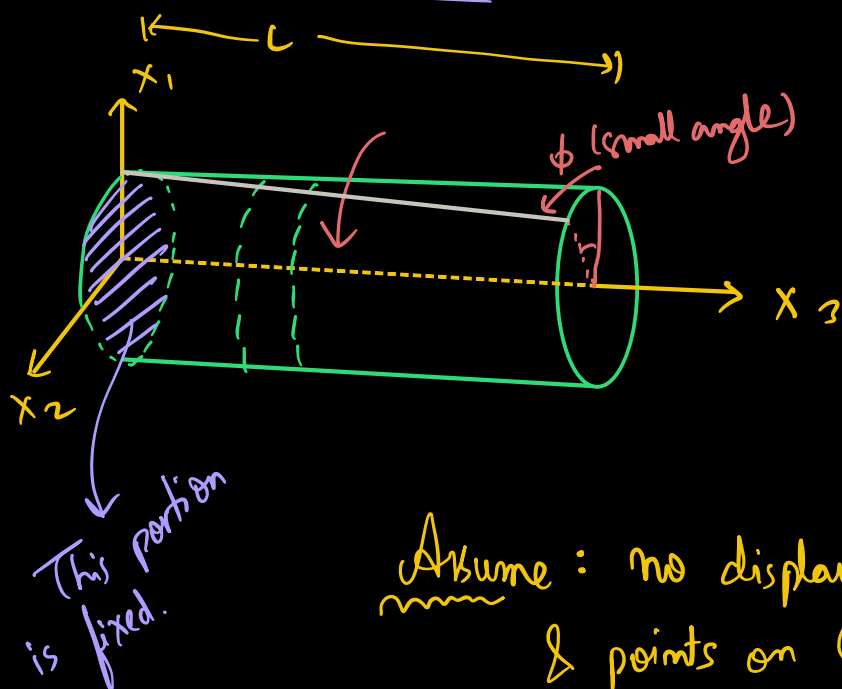 L
X1
ϕ (small angle)
X3
X2
This portion
is fixed.
Assume : no displa
& points on